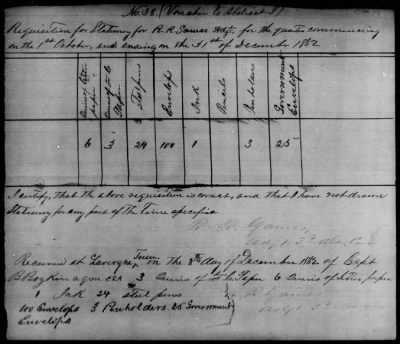 No. 38. (Voucher to Abstract I)
Requisition for Stationery for R. R. Gaines Adjt. for the quarter commencing
on the 1st October, and ending on the 31st of December 1862
Quires of letter paper
Quires of Paper
Steel pens
Envelops
Ink
Pencils
Penholders
Government Envelops
6 3 24 100 1 3 25
I certify, that the above requisition is correct, and that I have not drawn
Stationery for any part of the time specified
R. R. Gaines,
Adjt 3d Ala. Cav
Received at Lavergne Tenn on the 8th day of December 1862 of Capt
B Boykin a qm CSA 3 Quires of F. C. Paper 6 Quires of letter paper
1 Ink 24 steel pens
100 Envelops 3 Penholders 25 Government
Envelops
R Gaines
Adjt 3d